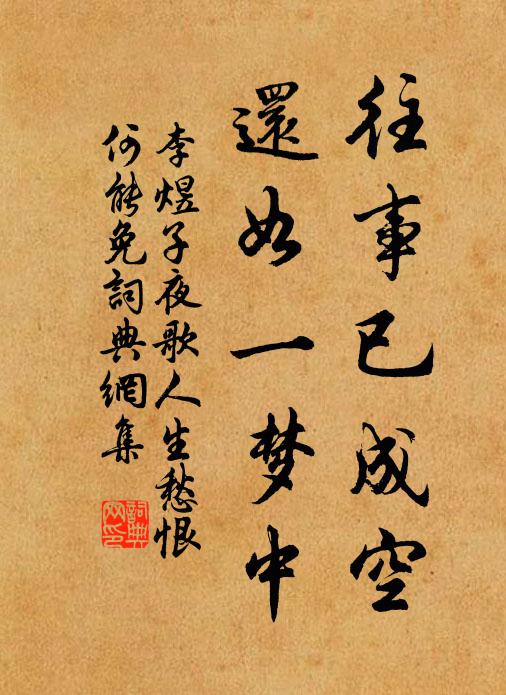 往事已成空
還如一梦中
李煜子夜歌人生愁恨
何能免詞典網集
詞典
网印